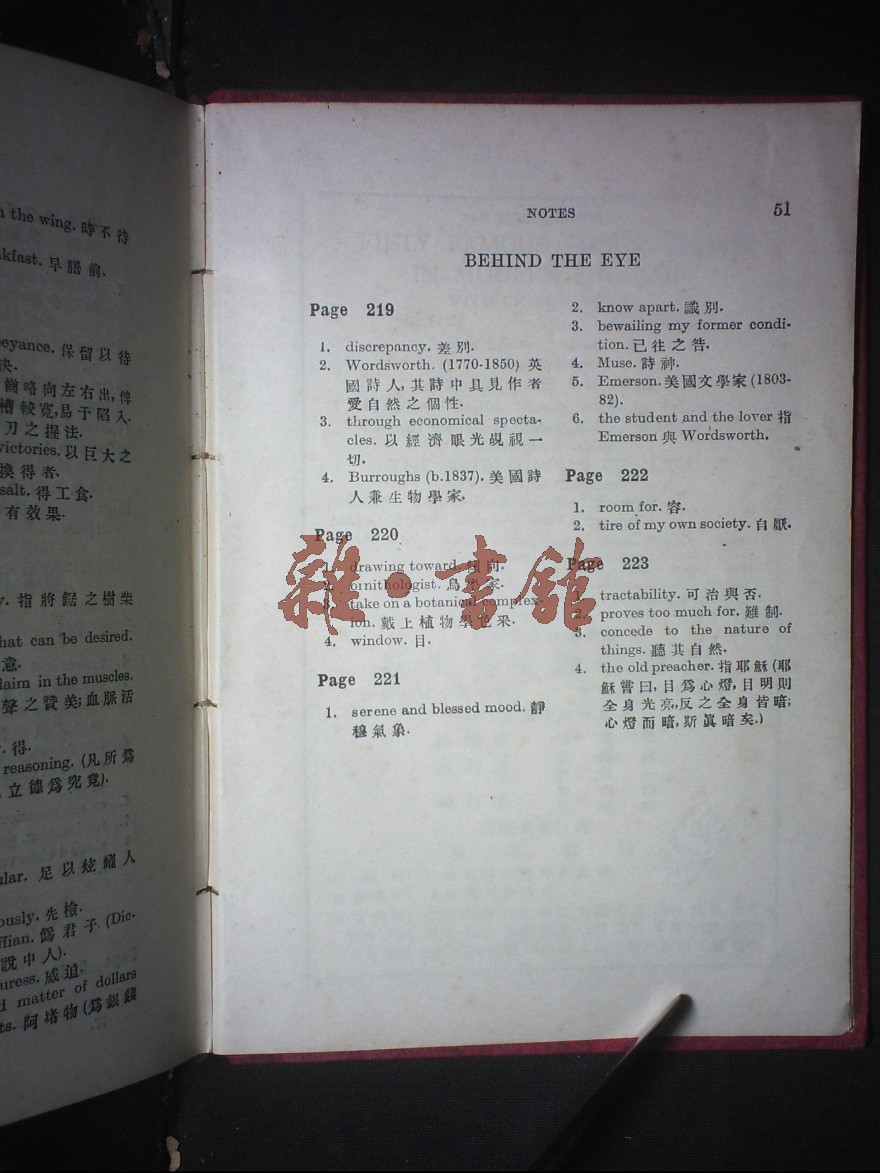 n the wing. 時不待
kfast. 早膳前.
eyance. 保留以待
決.
齒略向左右出,俾
槽較寬,易于陷入.
刀之捏法.
victories. 以巨大之
換得者.
salt. 得工食.
有效果.
y. 指將鋸之樹柴
hat can be desired.
意.
laim in the muscles.
聲之贊美;血脈活
. 得.
reasoning. (凡所爲
立德爲究竟).
ular. 足以炫耀人
ously. 先檢.
ffian. 僞君子. (Dic-
說中人).
uress. 威迫.
d matter of dollars
ts. 阿堵物(爲銀錢
NOTES 51
BEHIND THE EYE
Page 219
1. discrepancy. 差別.
2. Wordsworth. (1770-1850) 英
國詩人,其詩中具見作者
愛自然之個性.
3. through economical specta-
cles. 以經濟眼光覘視一
切.
4. Burroughs (b.1837). 美國詩
人兼生物學家.
Page 220
1. drawing toward. 傾向.
2. ornithologist. 鳥學家.
3. take on a botanical complex-
ion. 戴上植物學色采.
4. window. 目.
Page 221
1. serene and blessed mood. 靜
穆氣象.
2. know apart. 識別.
3. bewailing my former condi-
tion. 已往之咎.
4. Muse. 詩神.
5. Emerson. 美國文學家 (1803-
82).
6. the student and the lover 指
Emerson 與 Wordsworth.
Page 222
1. room for. 容.
2. tire of my own society. 自厭.
Page 223
1. tractability. 可治與否.
2. proves too much for. 難制.
3. concede to the nature of
things. 聽其自然.
4. the old preacher. 指耶穌 (耶
穌嘗曰,目爲心燈,目明則
全身光亮,反之全身皆暗;
心燈而暗,斯眞暗矣.)
雜·書館